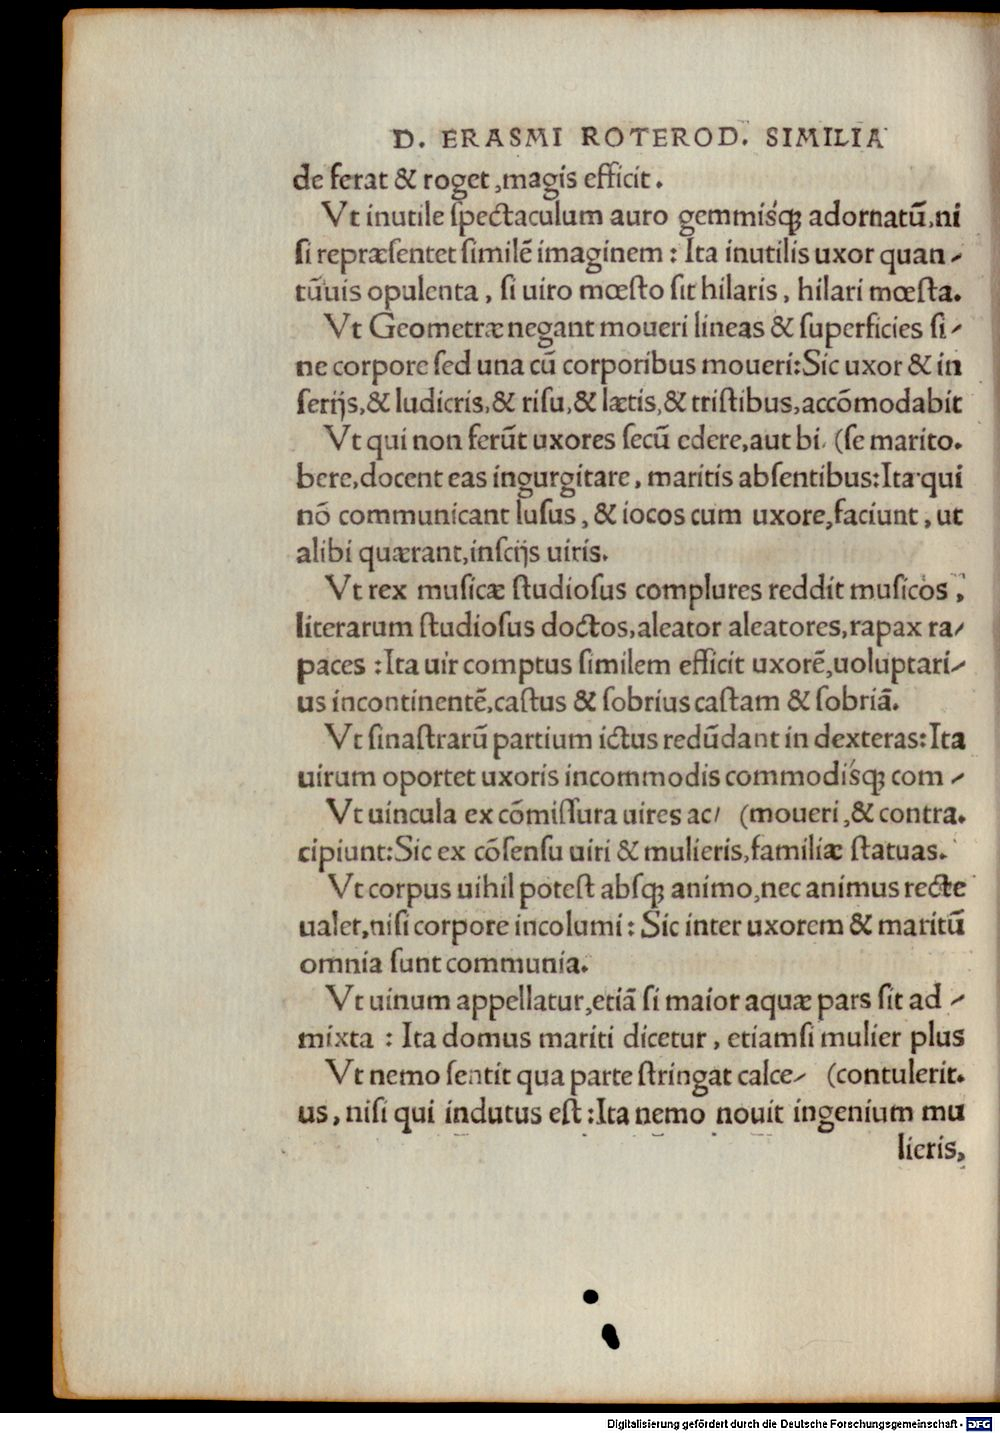 D. ERASMI ROTEROD. SIMILIA
de ferat & roget, magis efficit.
Vt inutile ſpectaculum auro gemmiſq́ꝫ adornatū, ni
ſi repræſentet ſimilē imaginem: Ita inutilis uxor quan-
tūuis opulenta, ſi uiro mœſto ſit hilaris, hilari mœſta.
Vt Geometræ negant moueri lineas & ſuperficies ſi-
ne corpore ſed una cū corporibus moueri: Sic uxor & in
ſerijs, & ludicris, & riſu, & lætis, & triſtibus, accōmodabit
Vt qui non ferūt uxores ſecū edere, aut bi (ſe marito.
bere, docent eas ingurgitare, maritis abſentibus: Ita qui
nō communicant luſus, & iocos cum uxore, faciunt, ut
alibi quærant, inſcijs uiris.
Vt rex muſicæ ſtudioſus complures reddit muſicos,
literarum ſtudioſus doctos, aleator aleatores, rapax ra-
paces: Ita uir comptus ſimilem efficit uxorē, uoluptari-
us incontinentē, caſtus & ſobrius caſtam & ſobriā.
Vt ſinaſtrarū partium ictus redūdant in dexteras: Ita
uirum oportet uxoris incommodis commodiſq́ꝫ com-
Vt uincula ex cōmiſſura uires ac- (moueri, & contra.
cipiunt: Sic ex cōſenſu uiri & mulieris, familiæ ſtatuas.
Vt corpus uihil poteſt abſqꝫ animo, nec animus recte
ualet, niſi corpore incolumi: Sic inter uxorem & maritū
omnia ſunt communia.
Vt uinum appellatur, etiā ſi maior aquæ pars ſit ad-
mixta: Ita domus mariti dicetur, etiamſi mulier plus
Vt nemo ſentit qua parte ſtringat calce- (contulerit.
us, niſi qui indutus eſt: Ita nemo nouit ingenium mu
lieris,
Digitalisierung gefördert durch die Deutsche Forschungsgemeinschaft - DFG